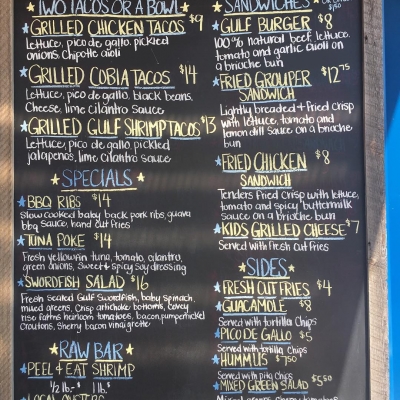 TWO TACOS OR A BOWL
GRILLED CHICKEN TACOS $9
Lettuce, pico de gallo, pickled
onions, Chipotle aioli
GRILLED COBIA TACOS $14
Lettuce, pico de gallo, black beans,
Cheese, lime cilantro sauce
GRILLED GULF SHRIMP TACOS $13
Lettuce, pico de gallo, pickled
jalapeños, lime cilantro sauce
SPECIALS
BBQ RIBS $14
Slow cooked baby back pork ribs, guava
bbq sauce, hand cut fries
TUNA POKE $14
Fresh yellowfin tuna, tomato, cilantro,
green onions, sweet & spicy soy dressing
SWORDFISH SALAD $16
Fresh Seared Gulf Swordfish, baby spinach,
mixed greens, Crisp artichoke bottoms,
rise farms heirloom tomatoes, bacon, pumpernickel
Croutons, Sherry bacon vinaigrette
RAW BAR
PEEL & EAT SHRIMP
1/2 lb. - 1 lb.
LOCAL OYSTERS
SANDWICHES
GULF BURGER $8
100% natural beef, lettuce,
tomato and garlic aioli on
a brioche bun
FRIED GROUPER $12.75
SANDWICH
Lightly breaded & Fried Crisp
with lettuce, tomato and
lemon dill sauce on a brioche
bun
FRIED CHICKEN $8
SANDWICH
Tenders fried crisp with lettuce,
tomato and spicy buttermilk
sauce on a brioche bun
KIDS GRILLED CHEESE $7
Served with fresh cut fries
SIDES
FRESH CUT FRIES $4
GUACAMOLE $8
Served with tortilla Chips
PICO DE GALLO $5
Served with tortilla Chips
HUMMUS $7.50
Served with pita Chips
MIXED GREEN SALAD $5.50